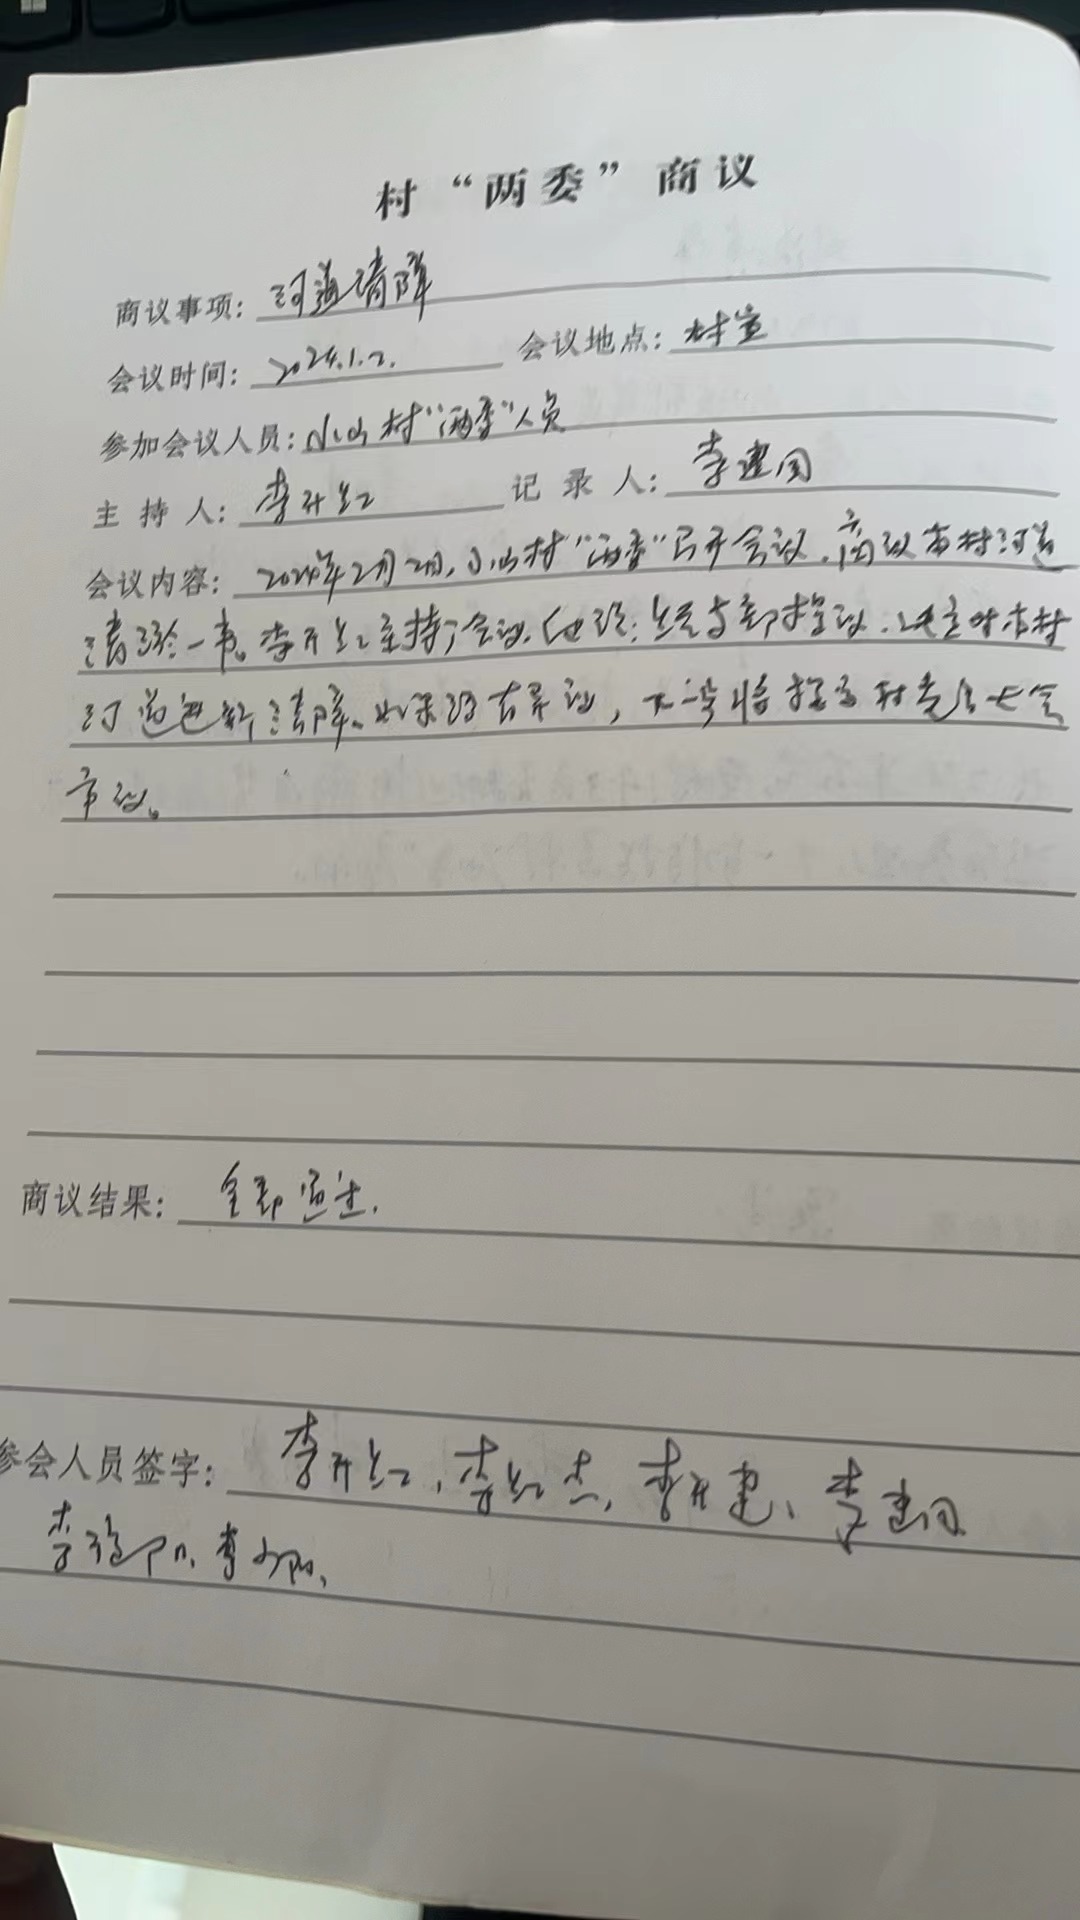 村“两委”商议
商议事项：河道清障
会议时间：2024.1.2. 会议地点：村室
参加会议人员：小山村“两委”人员
主持人：李开红 记录人：李建国
会议内容：2024年2月2日，小山村“两委”召开会议，商议本村河道
清障一事。李开红主持了会议，他说：经支部提议，决定对本村
河道进行清障。如果没有异议，下一步将提交村党员大会
审议。
商议结果：全部通过.
参会人员签字：李开红、李红杰、李开建、李建国
李